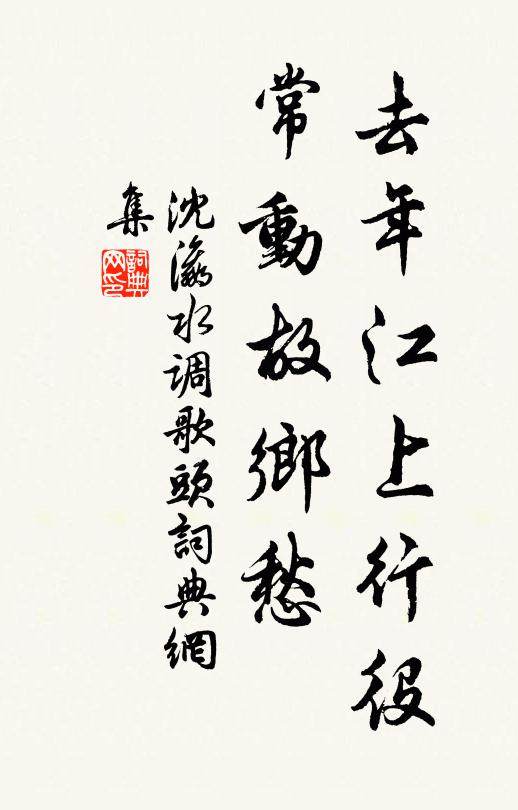 去年江上行役
常動故鄉愁
沈瀛水调歌頭詞典網
集
詞典网印